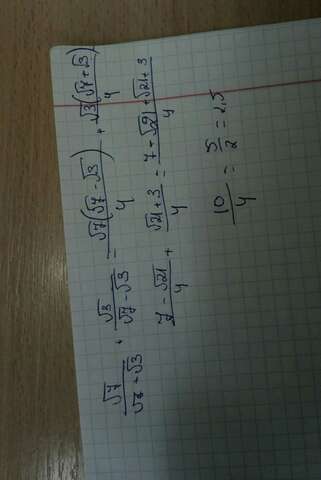 √7/(√7+√3) + √3/(√7-√3) = √7(√7-√3)/4 + √3(√7+√3)/4
(7-√21)/4 + (√21+3)/4 = (7+√21+√21+3)/4
10/4 = 5/2 = 2,5